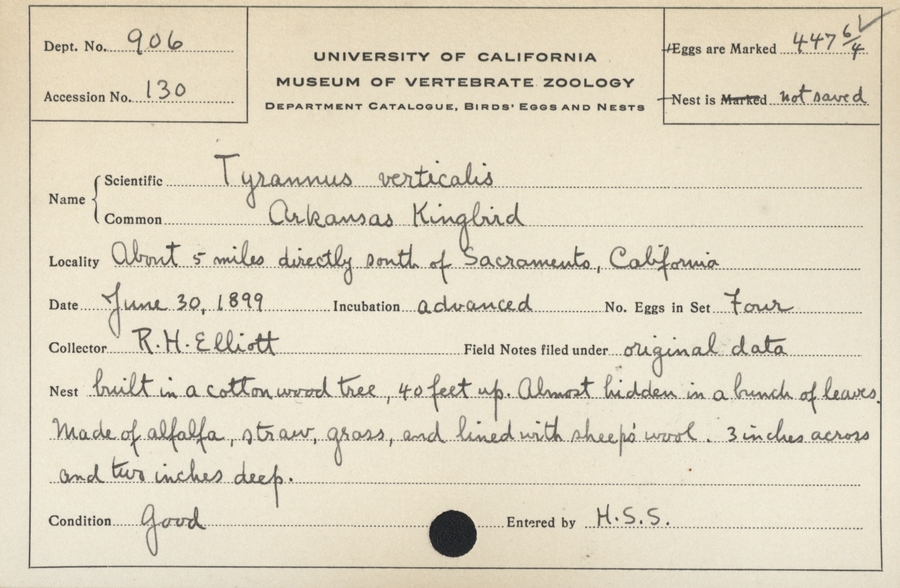 Dept. No. 906
Accession No. 130
UNIVERSITY OF CALIFORNIA
MUSEUM OF VERTEBRATE ZOOLOGY
DEPARTMENT CATALOGUE, BIRDS' EGGS AND NESTS
Eggs are Marked 447 6/4
Nest is Marked not saved
Name
Scientific Tyrannus verticalis
Common Arkansas Kingbird
Locality About 5 miles directly south of Sacramento, California
Date June 30, 1899 Incubation advanced No. Eggs in Set Four
Collector R.H. Elliott Field Notes filed under original data
Nest built in a cottonwood tree, 40 feet up. Almost hidden in a bunch of leaves.
Made of alfalfa, straw, grass, and lined with sheep's wool. 3 inches across
and two inches deep.
Condition Good Entered by H.S.S.